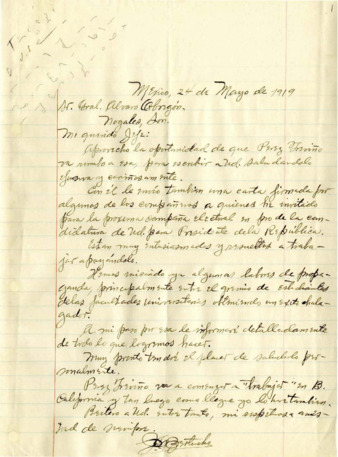 1
México, 24 de Mayo de 1919
Sr. Gral. Alvaro Obregón.
Nogales, Son.
Mi querido Jefe:
Aprovecho la oportunidad de que Perez Treviño
va rumbo a esa, para escribir a Ud. saludandolo
y cariñosamente.
Con él le envío tambien una carta firmada por
algunos de los compañeros a quienes he invitado
para la proxima campaña electoral en pro de la can-
didatura de Ud. para Presidente de la República.
Estan muy entusiasmados y resueltos a traba-
jar apoyándole.
Hemos iniciado ya algunas labores de propa-
ganda, principalmente entre el gremio de estudiantes
de las facultades universitarias obteniendo un exito hala-
gador.
A mi paso por esa le informaré detalladamente
de todo lo que logremos hacer.
Muy pronto tendré el placer de saludarlo per-
sonalmente.
Perez Treviño va a comenzar a "trabajar" en B.
California y tan luego como llegue yo lo haré tambien.
Reitero a Ud. entre tanto, mi respetuosa amis-
tad de siempre.